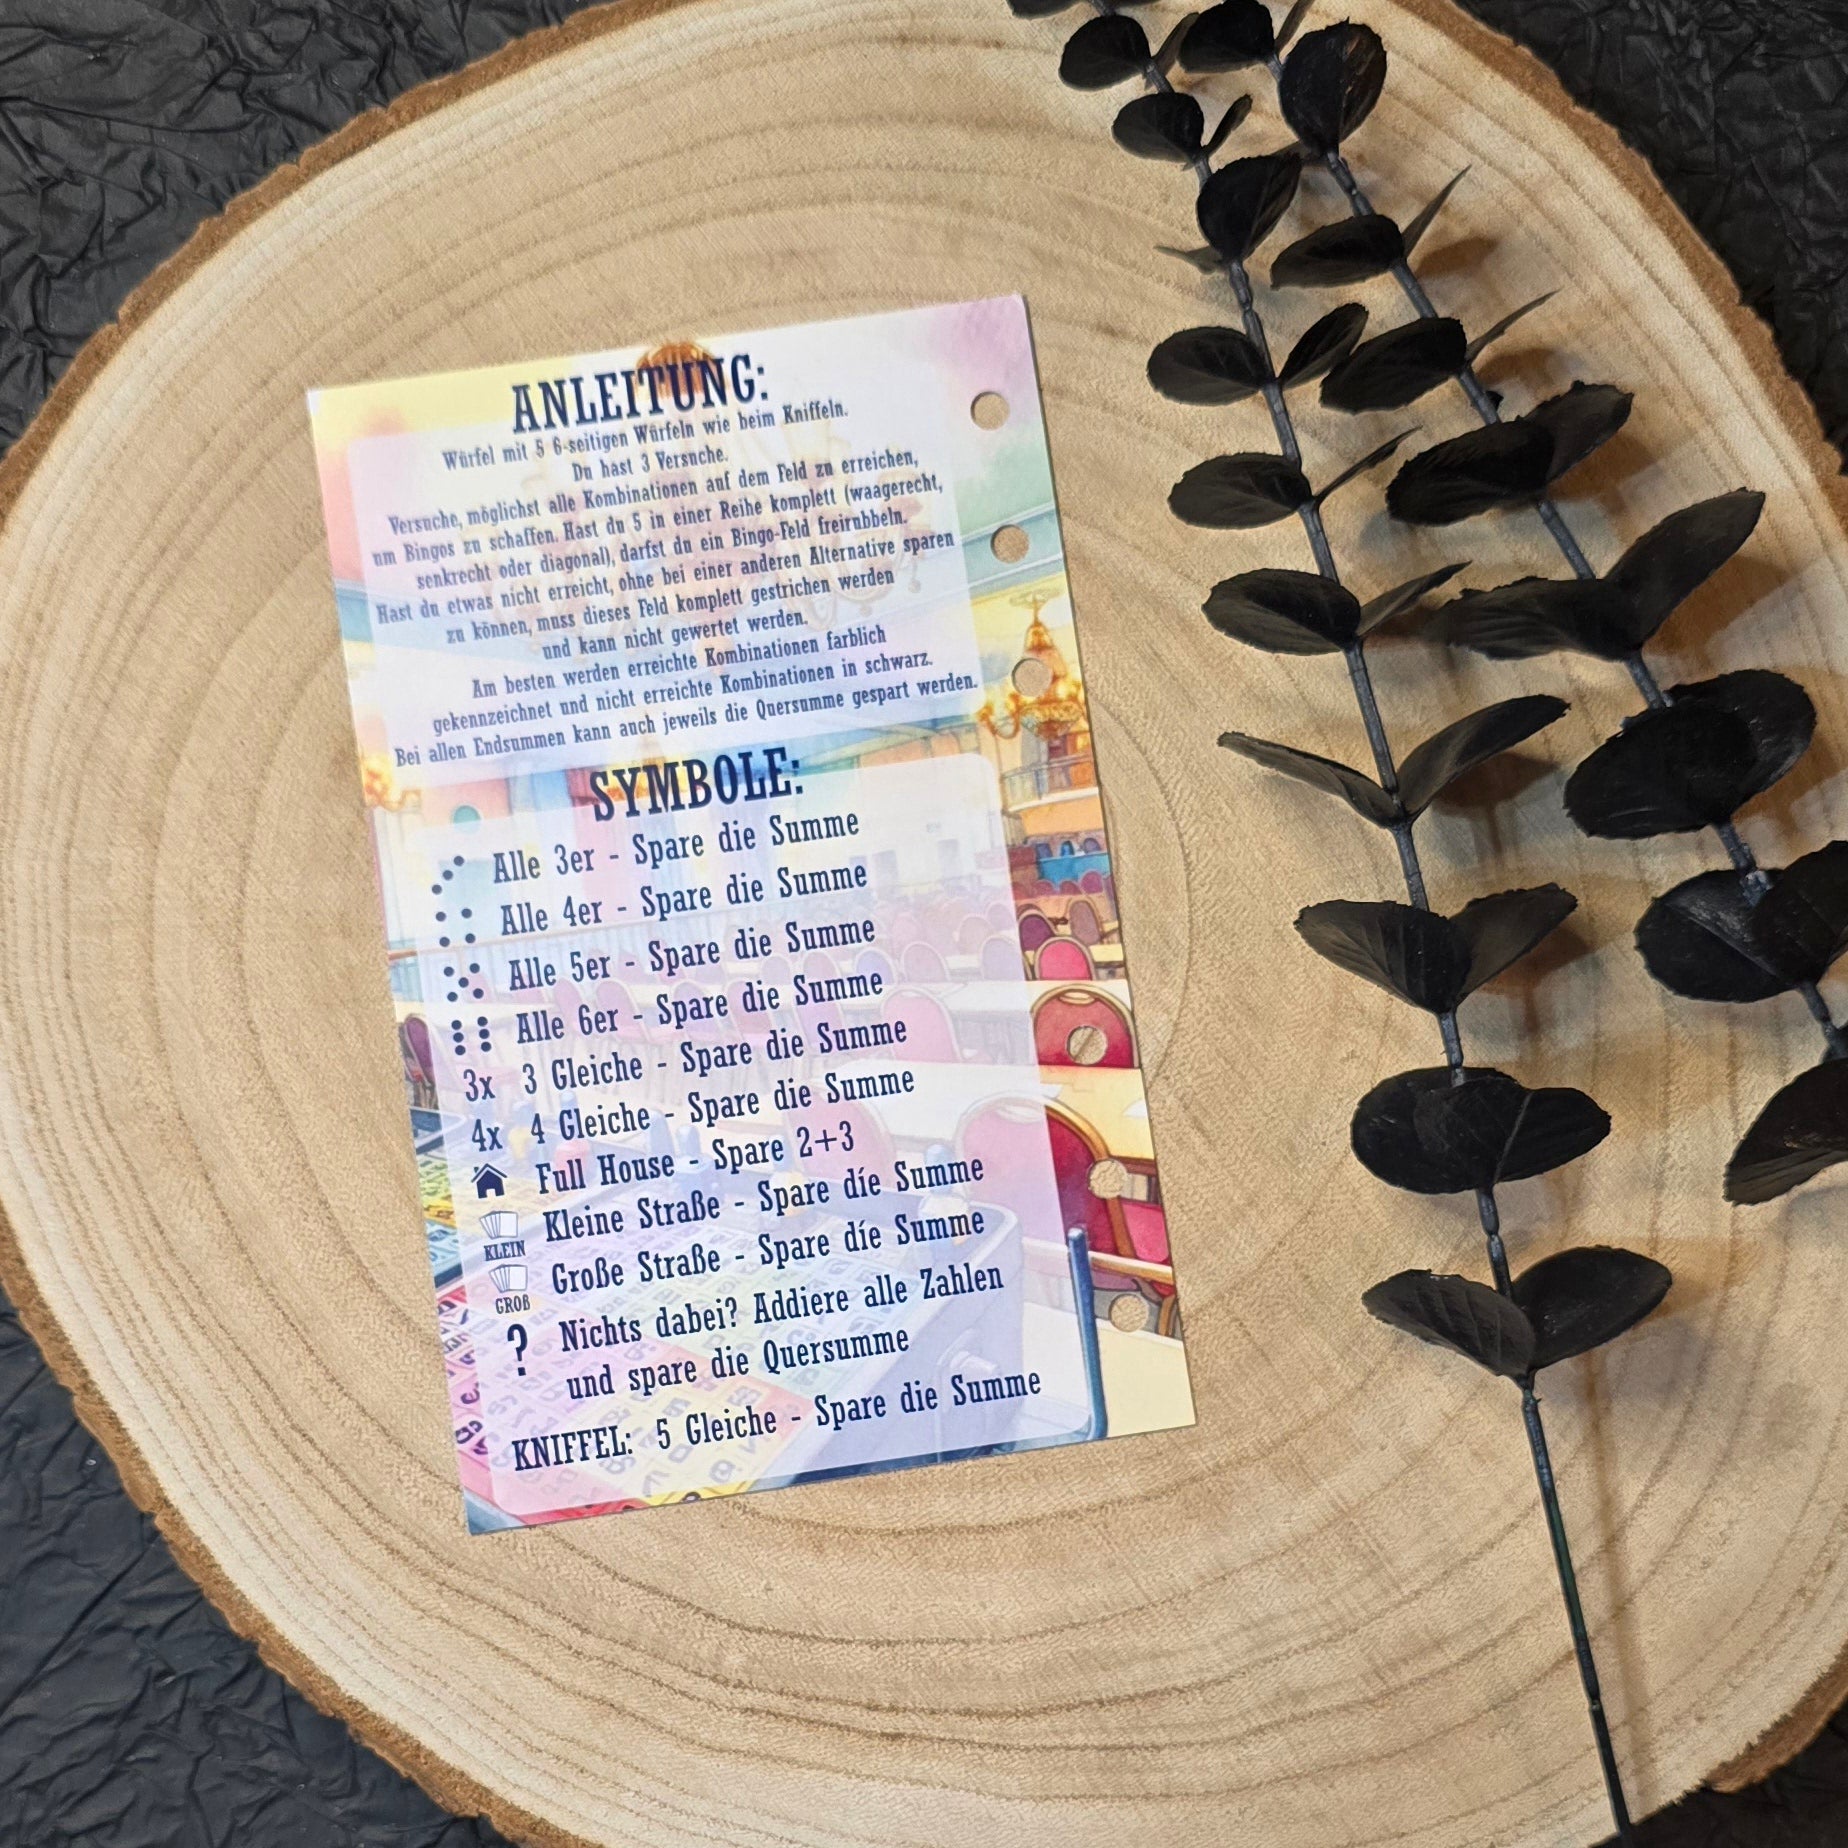 ANLEITUNG:
Würfel mit 5 6-seitigen Würfeln wie beim Kniffeln.
Du hast 3 Versuche.
Versuche, möglichst alle Kombinationen auf dem Feld zu erreichen,
um Bingos zu schaffen. Hast du 5 in einer Reihe komplett (waagerecht,
senkrecht oder diagonal), darfst du ein Bingo-Feld freirubbeln.
Hast du etwas nicht erreicht, ohne bei einer anderen Alternative sparen
zu können, muss dieses Feld komplett gestrichen werden
und kann nicht gewertet werden.
Am besten werden erreichte Kombinationen farblich
gekennzeichnet und nicht erreichte Kombinationen in schwarz.
Bei allen Endsummen kann auch jeweils die Quersumme gespart werden.
SYMBOLE:
Alle 3er - Spare die Summe
Alle 4er - Spare die Summe
Alle 5er - Spare die Summe
Alle 6er - Spare die Summe
3x 3 Gleiche - Spare die Summe
4x 4 Gleiche - Spare die Summe
Full House - Spare 2+3
KLEIN Kleine Straße - Spare díe Summe
GROß Große Straße - Spare díe Summe
? Nichts dabei? Addiere alle Zahlen
und spare die Quersumme
KNIFFEL: 5 Gleiche - Spare die Summe